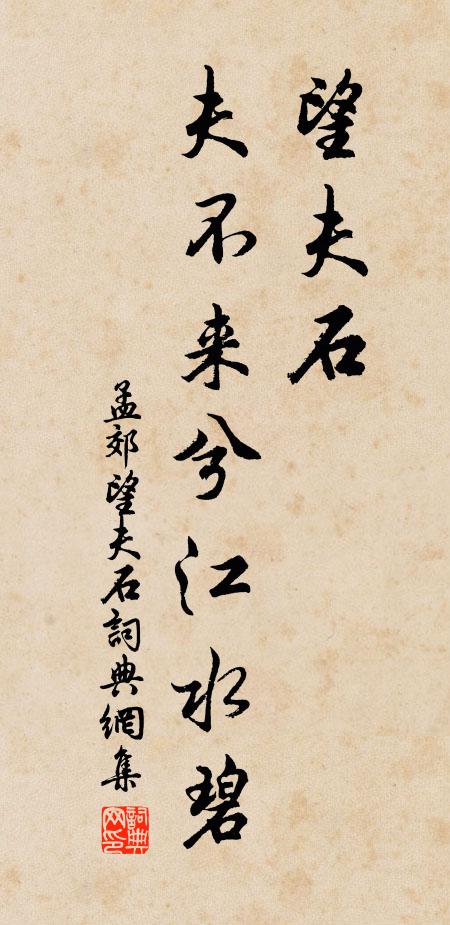 望夫石
夫不来兮江水碧
孟郊望夫石詞典網集
詞典網印